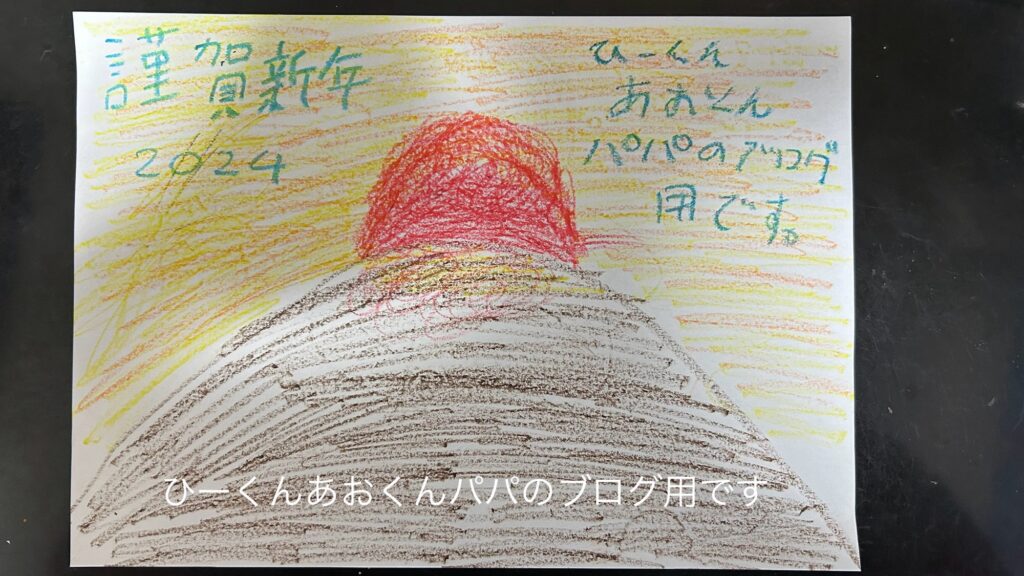 謹賀新年
2024
ひーくん
あおくん
パパのブログ
用です。
ひーくんあおくんパパのブログ用です